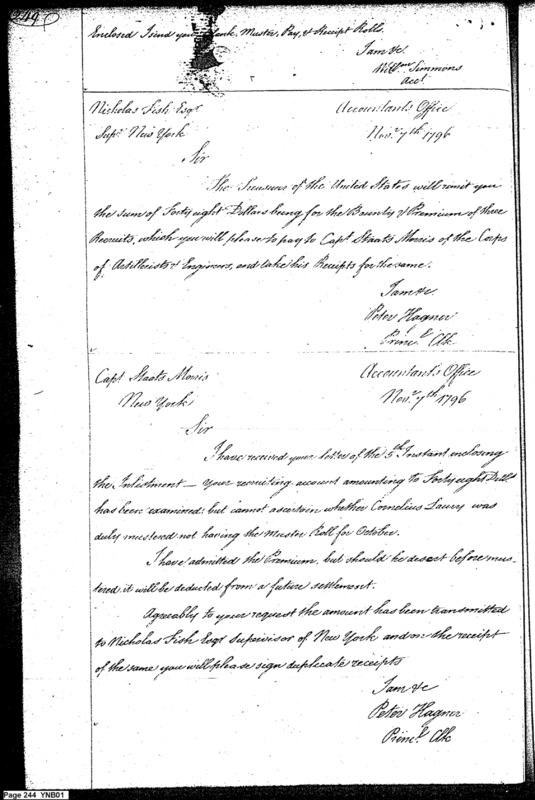 249
Enclosed I send you blank Muster, Pay, & Receipt Rolls.
I am &c
Willm Simmons
Acct
Nicholas Fish Esqr Accountants Office
Supr New York Novr 7th 1796
Sir
The Treasurer of the United States will remit you
the sum of Forty eight Dollars being for the Bounty & Premium of three
Recruits, which you will please to pay to Capt Staats Morris of the Corps
of Artillerists & Engineers, and take his Receipts for the same.
I am &c.
Peter Hagner
Princl Clk
Capt Staats Morris Accountant's Office
New York Novr 7th 1796
Sir
I have received your letter of the 5th Instant enclosing
the Inlistment — Your recruiting account amounting to Forty eight Dolls
has been examined; but cannot ascertain whether Cornelius Laury was
duly mustered not having the Muster Roll for October.
I have admitted the Premium, but should he desert before mus-
tered, it will be deducted from a future settlement.
Agreeably to your request the amount has been transmitted
to Nicholas Fish Esqr Supervisor of New York and on the receipt
of the same you will please sign duplicate receipts
I am &c
Peter Hagner
Princl Clk
Page 244 YNB01